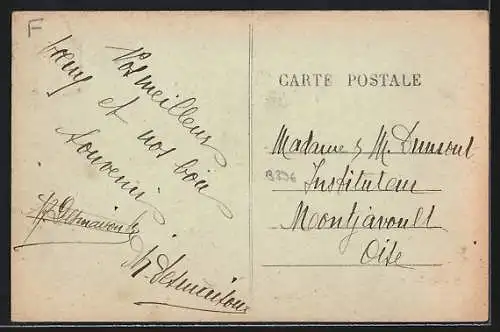 F
Nos meilleurs
vœux
et nos bons
souvenirs
CARTE POSTALE
Madame & M. Dumont
Instituteur
Montjavoult
Oise
B396